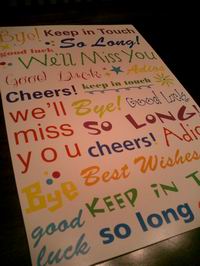 Bye! Keep in Touch
good luck So Long!
We'll Miss You
Good Luck Adios
Cheers! keep in touch
we'll Bye! Good Luck
miss SO LONG
you cheers! Adi
Bye Best Wishes
good KEEP IN T
luck so long